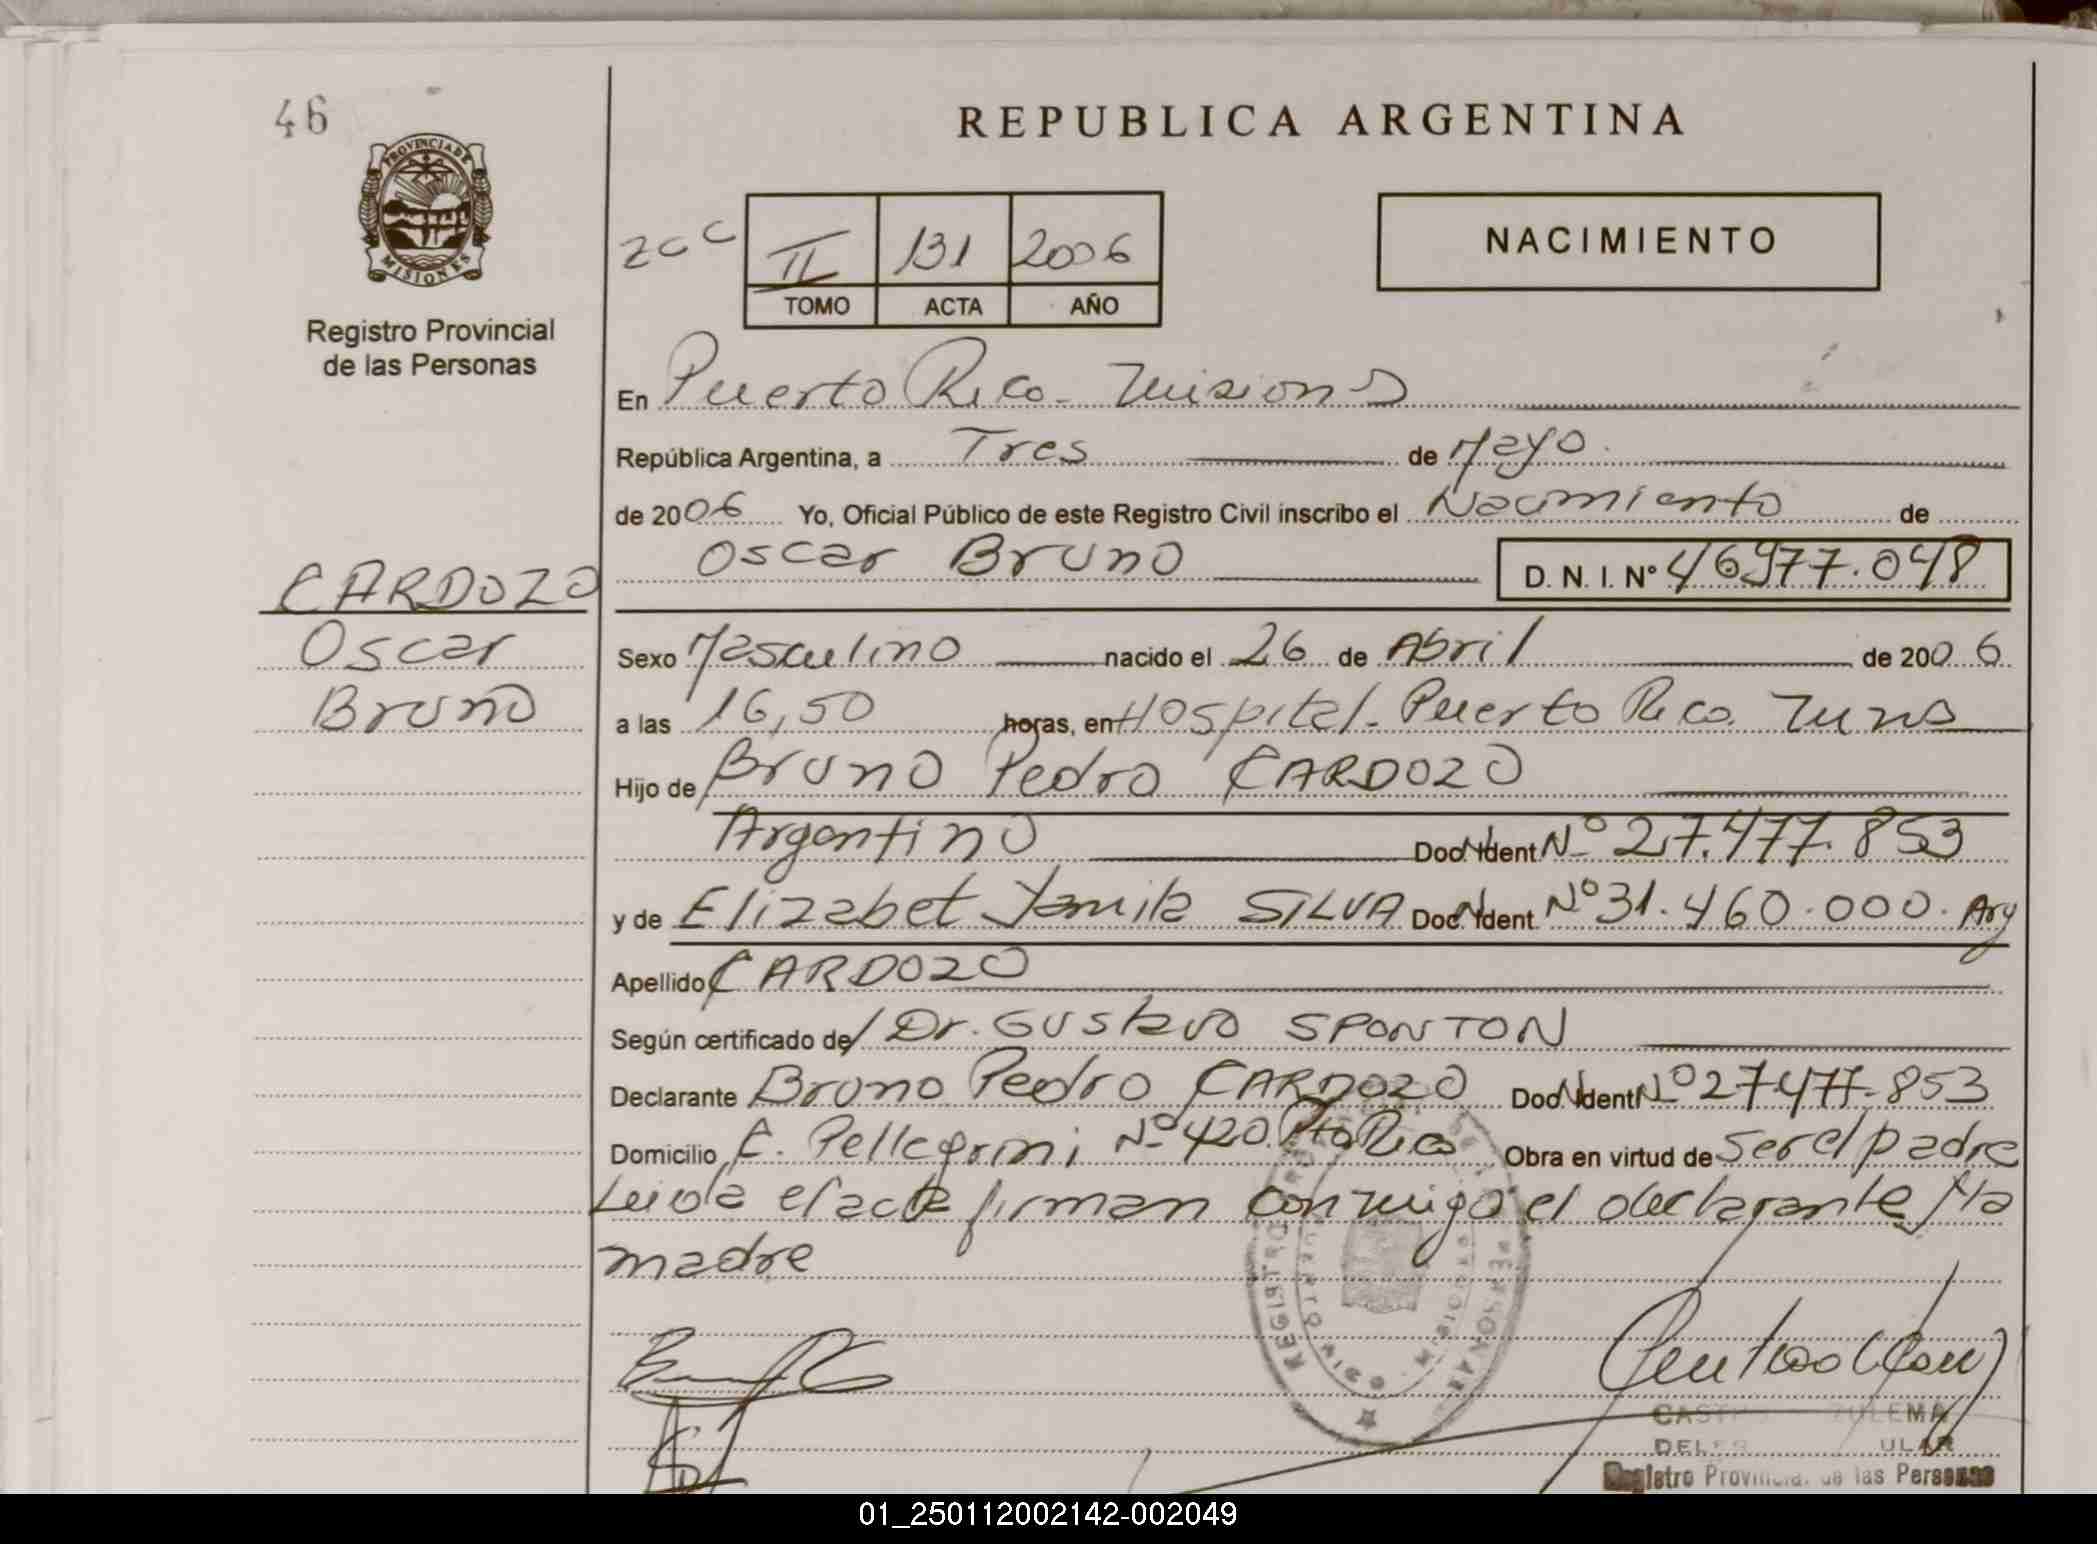 46
REPUBLICA ARGENTINA
PROVINCIA DE
MISIONES
Registro Provincial
de las Personas
NACIMIENTO
II 131 2006
TOMO ACTA AÑO
En Puerto Rico - Misiones
República Argentina, a Tres de Mayo.
de 2006 Yo, Oficial Público de este Registro Civil inscribo el Nacimiento de
Oscar Bruno D. N. I. N° 46977.048
CARDOZO
Oscar
Bruno
Sexo Masculino nacido el 26 de Abril de 2006
a las 16,50 horas, en Hospital - Puerto Rico. Mnes
Hijo de Bruno Pedro CARDOZO
Argentino Doc. Ident Nº 27.477.853
y de Elizabet Yamila SILVA Doc. Ident. Nº 31.460.000. Arg
Apellido CARDOZO
Según certificado de/ Dr. Gustavo SPONTON
Declarante Bruno Pedro CARDOZO Doc. Ident Nº 27477.853
Domicilio C. Pellegrini Nº 420 Pto Rico Obra en virtud de ser el padre
Leida el acta firman conmigo el declarante y la
madre
REGISTRO PERSONAS
ZULEMA
Registro Provincial de las Personas
01_250112002142-002049